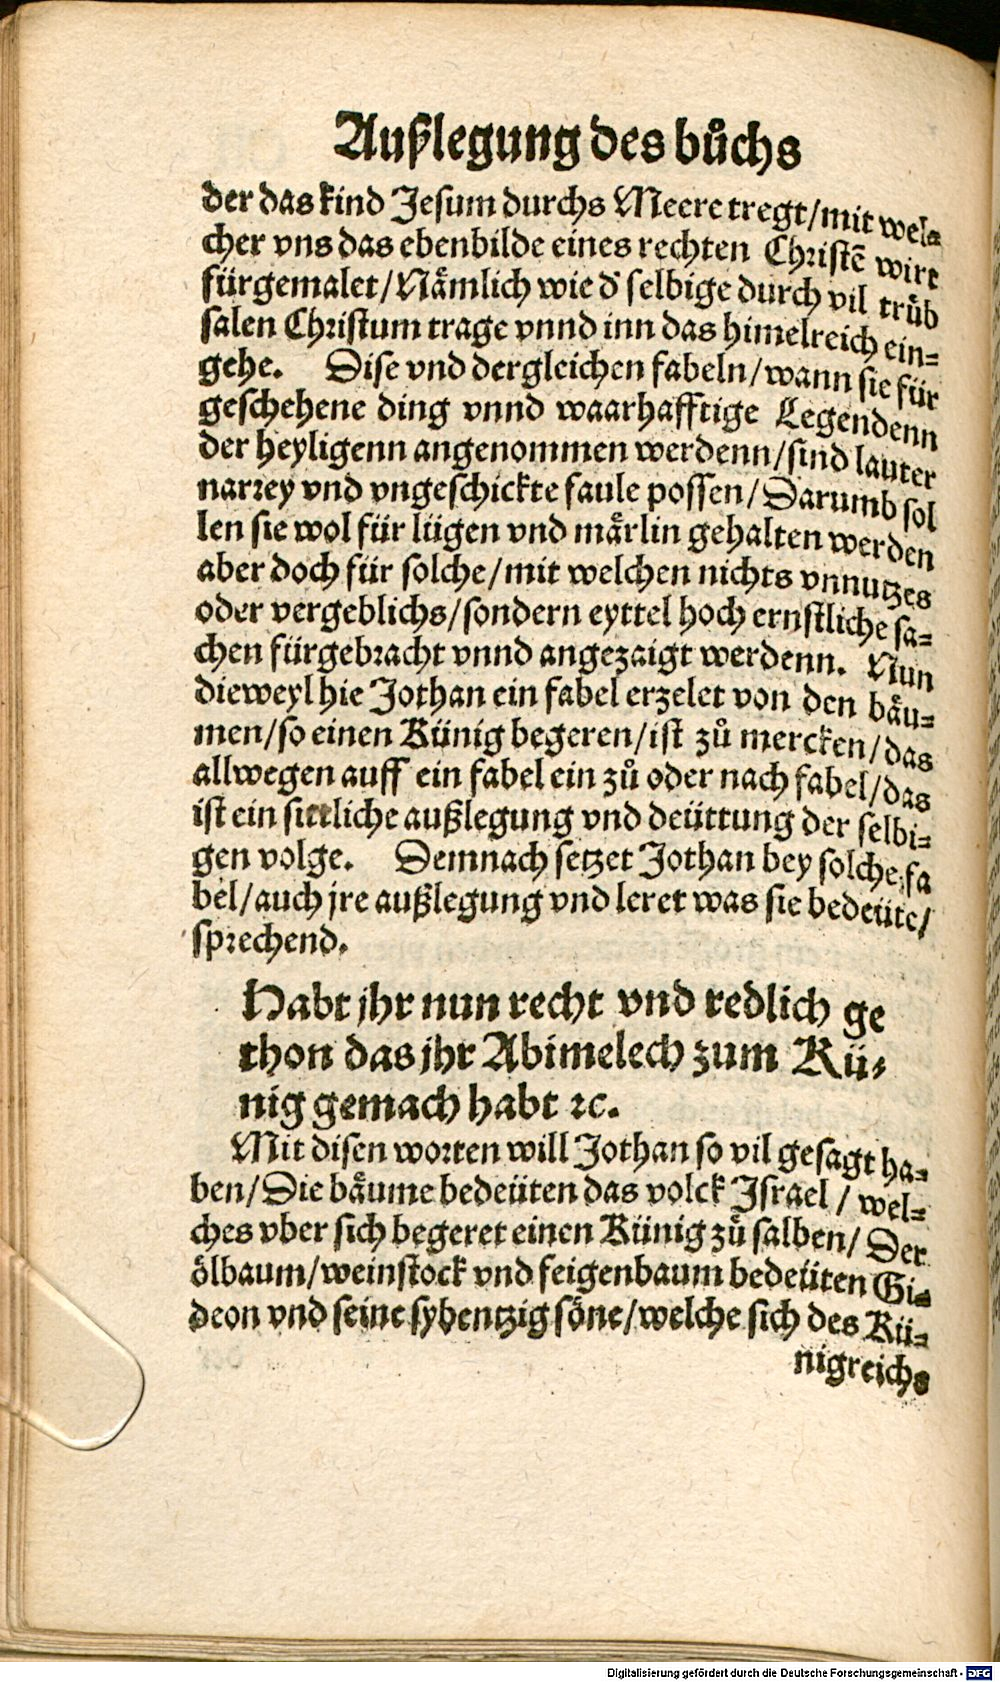 Außlegung des bůchs
der das kind Jesum durchs Meere tregt/mit wel⸗
cher vns das ebenbilde eines rechten Christẽ wirt
fürgemalet/Nåmlich wie d' selbige durch vil trůb
salen Christum trage vnnd inn das himelreich ein⸗
gehe. Dise vnd dergleichen fabeln/wann sie für
geschehene ding vnnd waarhafftige Legendenn
der heyligenn angenommen werdenn/sind lauter
narrey vnd vngeschickte faule possen/Darumb sol
len sie wol für lügen vnd mårlin gehalten werden
aber doch für solche/mit welchen nichts vnnutzes
oder vergeblichs/sondern eyttel hoch ernstliche sa⸗
chen fürgebracht vnnd angezaigt werdenn. Nun
dieweyl hie Jothan ein fabel erzelet von den båu⸗
men/so einen Künig begeren/ist zů mercken/das
allwegen auff ein fabel ein zů oder nach fabel/das
ist ein sittliche außlegung vnd deüttung der selbi⸗
gen volge. Demnach setzet Jothan bey solche fa
bel/auch jre außlegung vnd leret was sie bedeüte/
sprechend.
Habt jhr nun recht vnd redlich ge
thon das jhr Abimelech zum Kü⸗
nig gemach habt ꝛc.
Mit disen worten will Jothan so vil gesagt ha⸗
ben/Die båume bedeüten das volck Israel/wel⸗
ches vber sich begeret einen Künig zů salben/Der
ölbaum/weinstock vnd feigenbaum bedeüten Gi⸗
deon vnd seine sybentzig söne/welche sich des Kü⸗
nigreichs
Digitalisierung gefördert durch die Deutsche Forschungsgemeinschaft - DFG